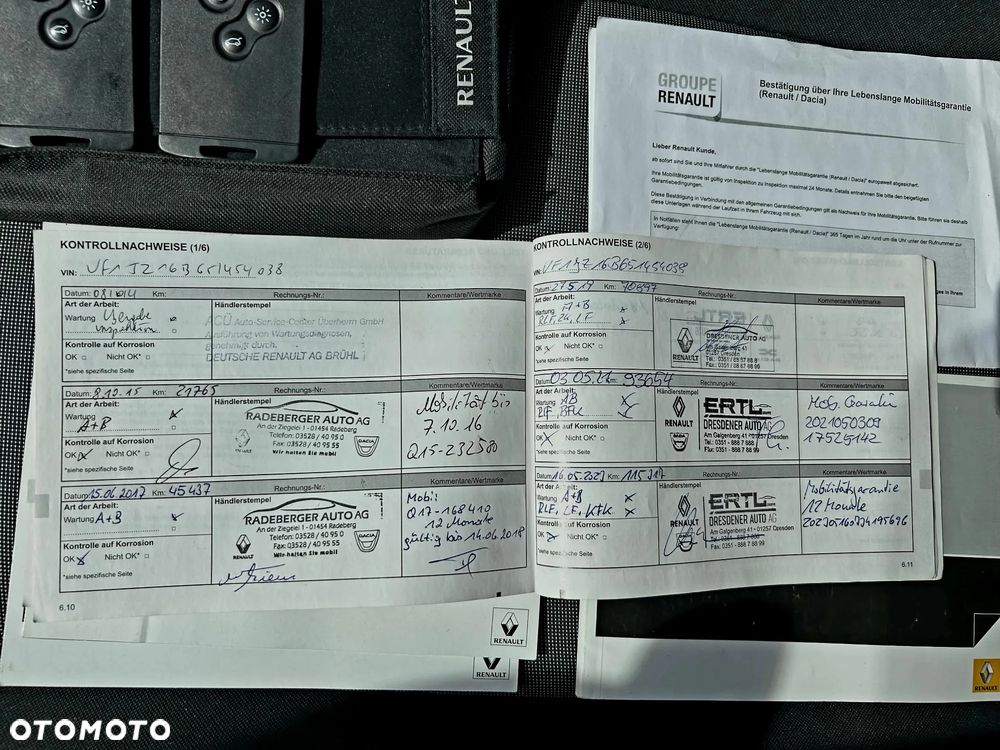 RENAULT
GROUPE
RENAULT
Bestätigung über Ihre Lebenslange Mobilitätsgarantie
(Renault / Dacia)
Lieber Renault Kunde,
ab sofort sind Sie und Ihre Mitfahrer durch die "Lebenslange Mobilitätsgarantie (Renault / Dacia)" europaweit abgesichert.
Ihre Mobilitätsgarantie ist gültig von Inspektion zu Inspektion maximal 24 Monate. Details entnehmen Sie bitte den beigefügten
Garantiebedingungen.
Diese Bestätigung in Verbindung mit den allgemeinen Garantiebedingungen gilt als Nachweis für Ihre Mobilitätsgarantie. Bitte führen sie deshalb
diese Unterlagen während der Laufzeit in Ihrem Fahrzeug mit sich.
In Notfällen steht Ihnen die "Lebenslange Mobilitätsgarantie (Renault / Dacia)" 365 Tagen im Jahr rund um die Uhr unter der Rufnummer zur
Verfügung:
KONTROLLNACHWEISE (1/6)
VIN:
Datum: Km: Rechnungs-Nr.: Kommentare/Wertmarke
Art der Arbeit: Händlerstempel
Wartung
ACÜ Auto-Service-Center Überherrn GmbH
Ausführung von Wartungsdiagnosen,
genehmigt durch.
DEUTSCHE RENAULT AG BRÜHL
Kontrolle auf Korrosion
OK Nicht OK*
*siehe spezifische Seite
Datum: 8.10.15 Km: 21765 Rechnungs-Nr.: Kommentare/Wertmarke
Art der Arbeit: Händlerstempel
Wartung
A+B
RADEBERGER AUTO AG
An der Ziegelei 1 - 01454 Radeberg
Telefon: 03528 / 40 95 0
Fax: 03528 / 40 95 55
Wir halten Sie mobil
DACIA
Mobilität bis
7.10.16
Q15-232580
Kontrolle auf Korrosion
OK Nicht OK*
*siehe spezifische Seite
Datum: 15.06.2017 Km: 45437 Rechnungs-Nr.: Kommentare/Wertmarke
Art der Arbeit: Händlerstempel
Wartung A+B
RADEBERGER AUTO AG
An der Ziegelei 1 - 01454 Radeberg
Telefon: 03528 / 40 95 0
Fax: 03528 / 40 95 55
Wir halten Sie mobil
RENAULT
DACIA
Mobil:
Q17-168410
12 Monate
gültig bis 14.06.2018
Kontrolle auf Korrosion
OK Nicht OK*
*siehe spezifische Seite
6.10
KONTROLLNACHWEISE (2/6)
VIN:
Datum: Km: 70897 Rechnungs-Nr.: Kommentare/Wertmarke
Art der Arbeit: Händlerstempel
Wartung A+B
RENAULT
DRESDENER AUTO AG
Am Galgenberg 41
01257 Dresden
Kontrolle auf Korrosion
OK Nicht OK*
*siehe spezifische Seite
Datum: 03.05.21 Km: 93654 Rechnungs-Nr.: Kommentare/Wertmarke
Art der Arbeit: Händlerstempel
Wartung AB
RENAULT
ERTL
DRESDENER AUTO AG
Am Galgenberg 41 - 01257 Dresden
Tel.: 0351 - 888 7 888
Fax: 0351 - 888 7 88 99
2021050309
Kontrolle auf Korrosion
OK Nicht OK*
*siehe spezifische Seite
Datum: 16.05.2023 Km: Rechnungs-Nr.: Kommentare/Wertmarke
Art der Arbeit: Händlerstempel
Wartung A+B
RLF, LF, KFK
RENAULT
ERTL
DRESDENER AUTO AG
Am Galgenberg 41 - 01257 Dresden
Tel.: 0351 - 888 7 888
Fax: 0351 - 888 7 88 99
Mobilitätsgarantie
12 Monate
Kontrolle auf Korrosion
OK Nicht OK*
*siehe spezifische Seite
6.11
RENAULT
RENAULT
RENAULT
OTOMOTO